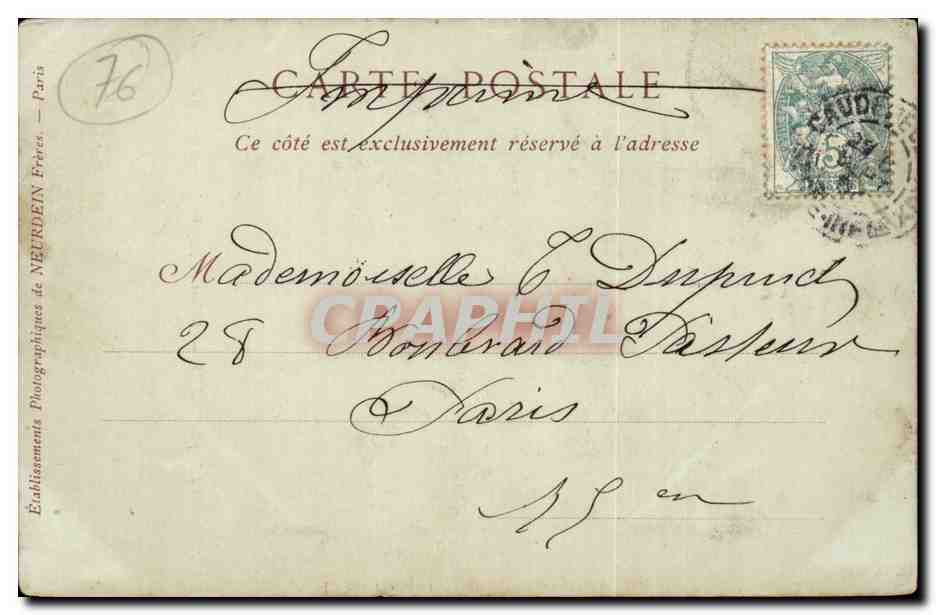 76
CARTE POSTALE
Imprimé
Ce côté est exclusivement réservé à l'adresse
5
CAUDE
Mademoiselle
28 Boulevard Pasteur
Paris
15 en
CRAPHIL
Établissements Photographiques de NEURDEIN Frères. — Paris